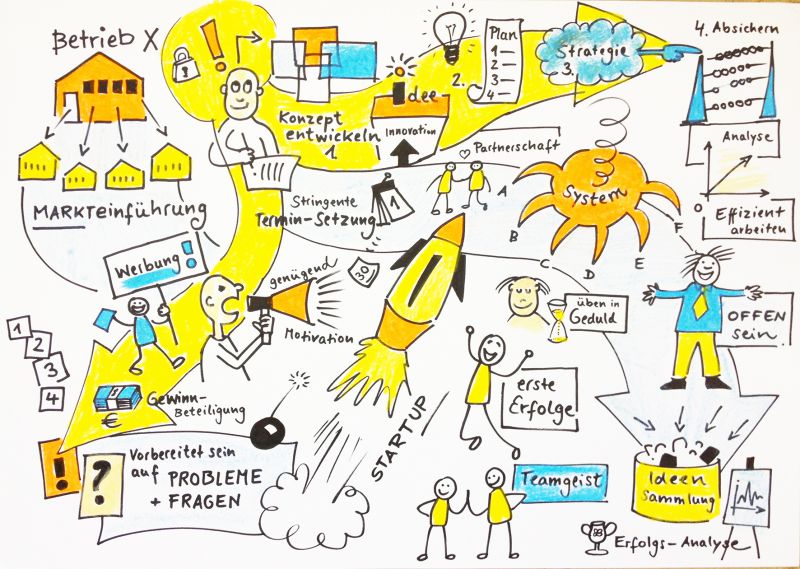 Betrieb X
MARKTeinführung
!
Konzept
entwickeln
1.
Idee
Innovation
2.
Plan
1
2
3
4
Strategie
3.
4. Absichern
Analyse
0
Effizient
arbeiten
Partnerschaft
Stringente
Termin-Setzung
1
30
System
A
B
C
D
E
F
Werbung!
genügend
Motivation
1
2
3
4
Gewinn-
Beteiligung
€
üben in
Geduld
OFFEN
sein
erste
Erfolge
STARTUP
!
?
Vorbereitet sein
auf PROBLEME
+ FRAGEN
Teamgeist
Ideen
Sammlung
Erfolgs-Analyse